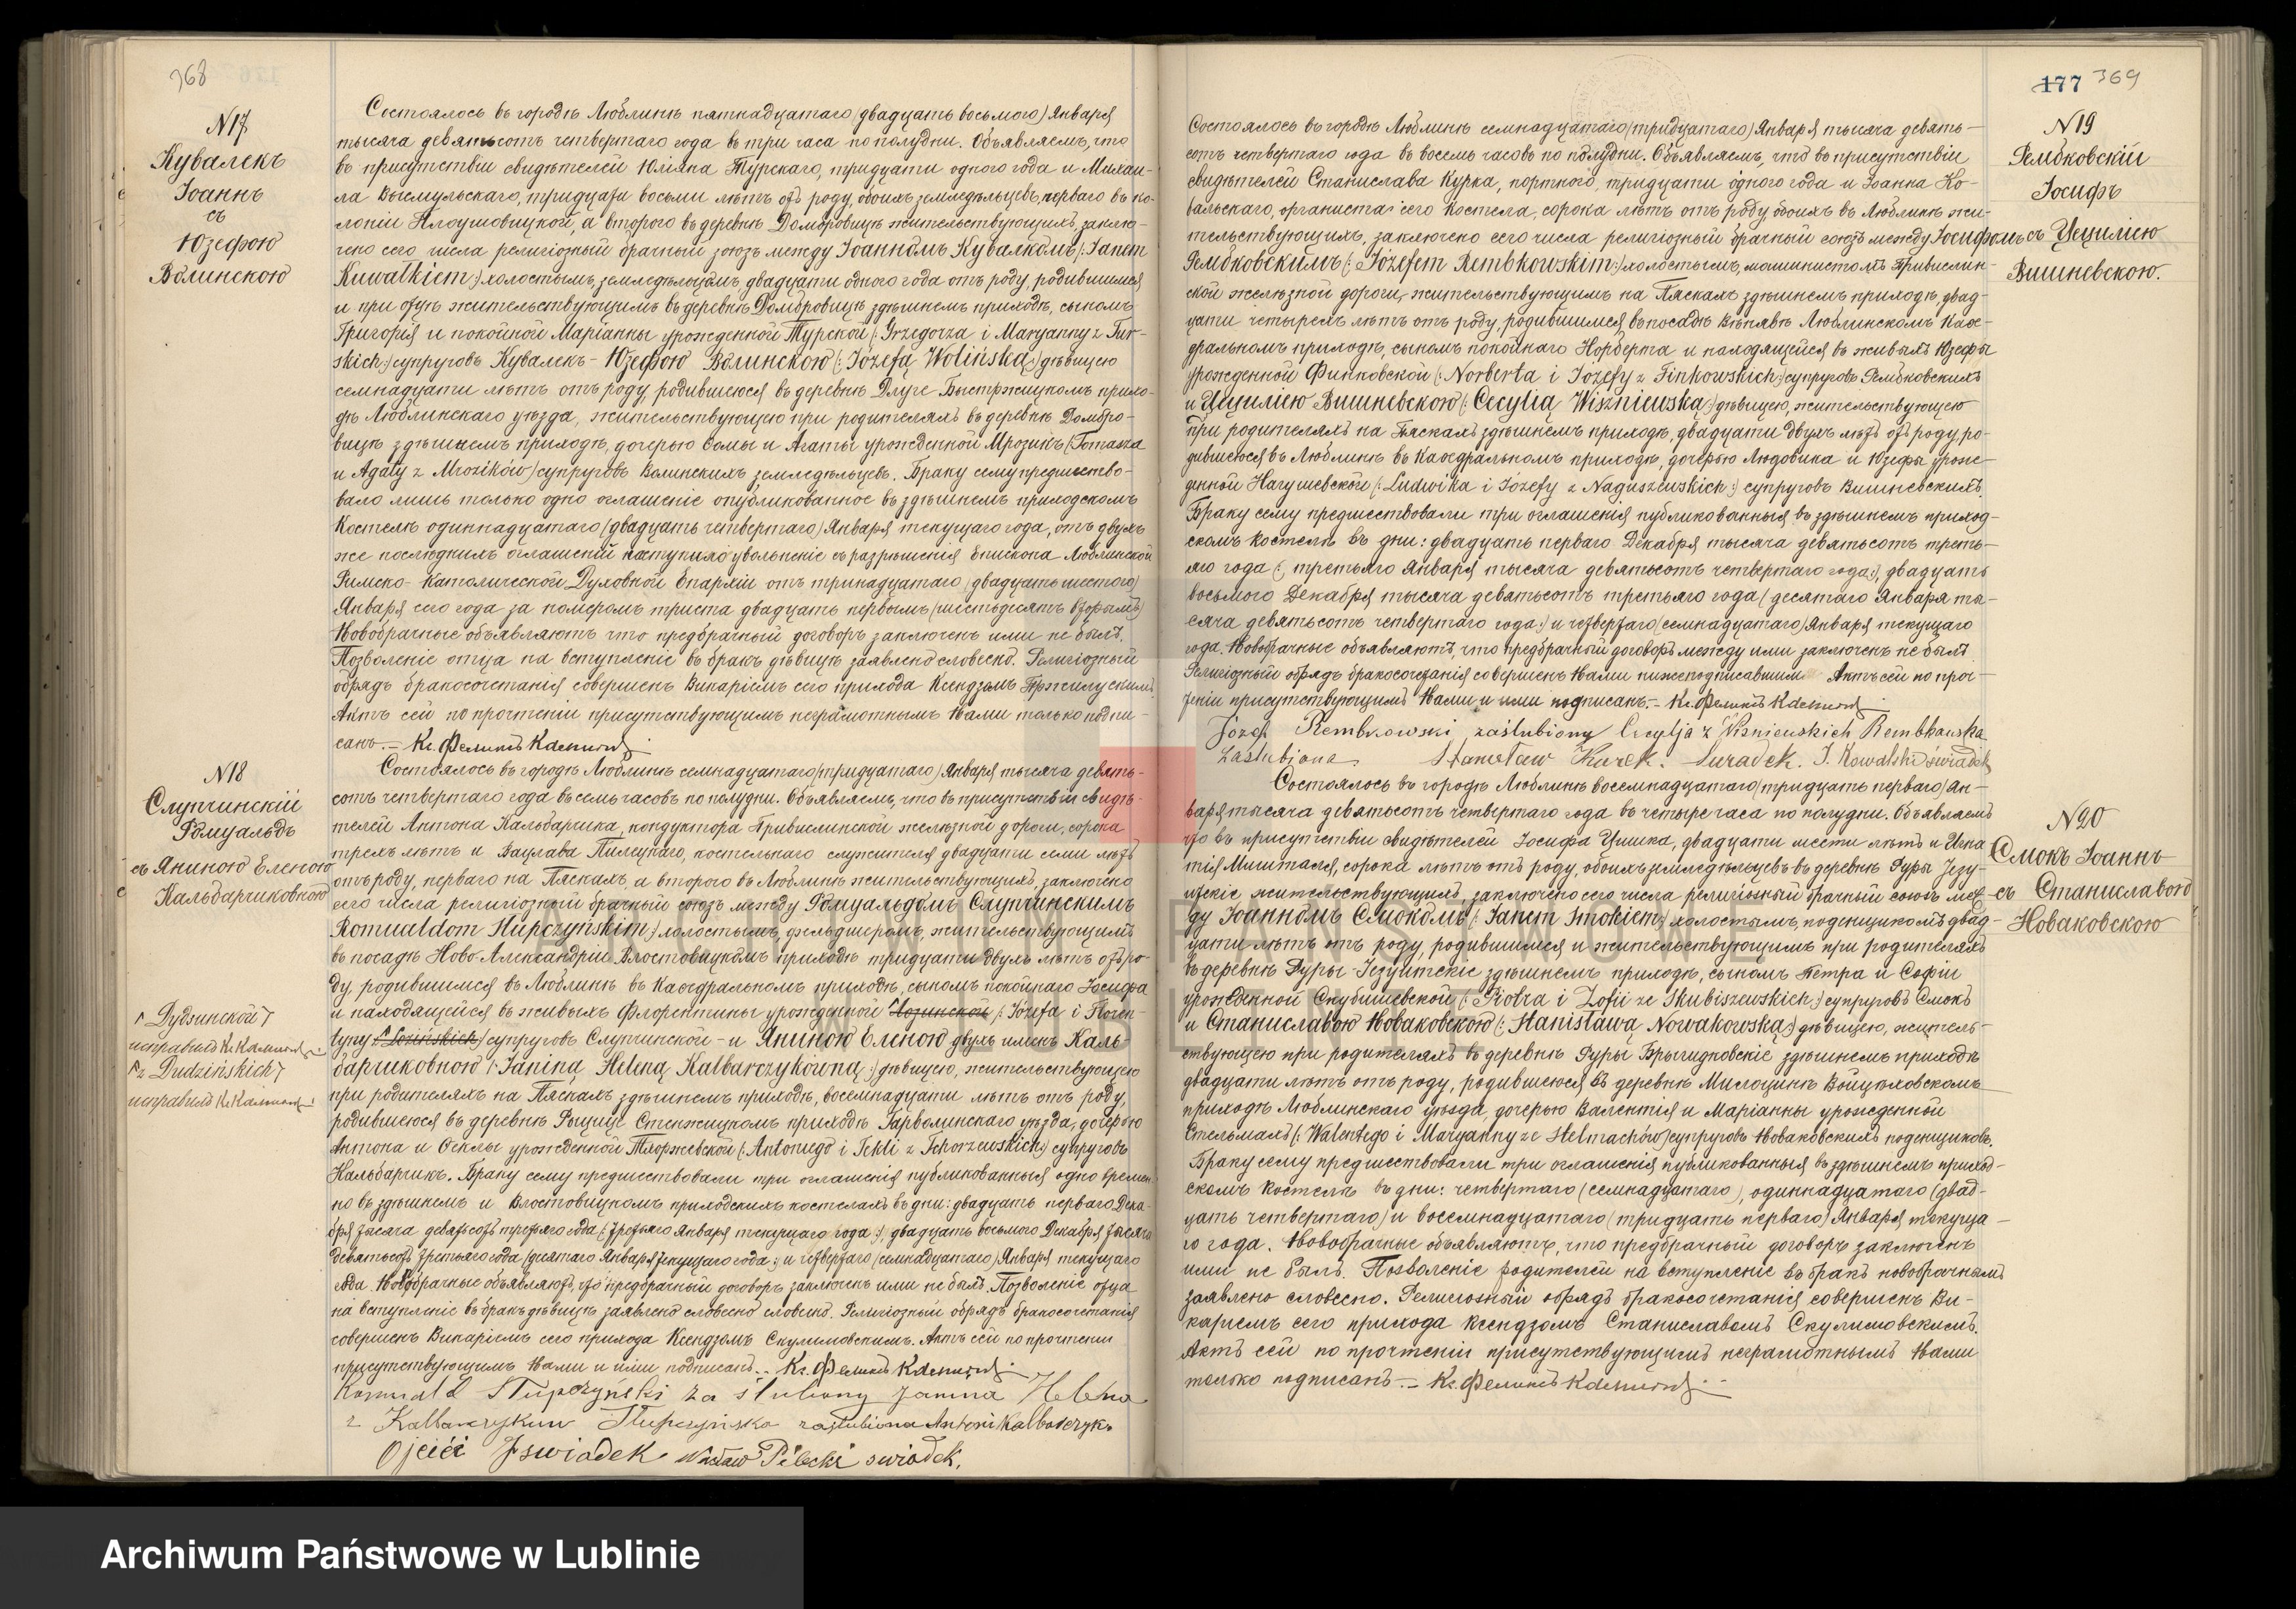 368
N17
Кувалекъ
Іоаннъ
съ
Юзефою
Волинскою
Состоялось въ городѣ Люблинѣ пятнадцатаго (двадцать восьмого) Января
тысяча девятьсотъ четвертаго года въ три часа по полудни. Объявляемъ, что
въ присутствіи свидѣтелей Юліяна Турскаго, тридцати одного года и Михаи-
ла Восмульскаго, тридцати восьми лѣтъ отъ роду, обоихъ земледѣльцевъ, перваго въ ко-
лоніи а второго въ деревнѣ Домбровицѣ жительствующихъ, заклю-
чено сего числа религіозный брачный союзъ между Іоанномъ Кувалкомъ (: Janem
Kuwałkiem :) холостымъ, земледѣльцемъ, двадцати одного года отъ роду, родившимся
и при отцѣ жительствующимъ въ деревнѣ Домбровицѣ здѣшнемъ приходѣ, сыномъ
Григорія и покойной Маріанны урожденной Турской (: Grzegorza i Maryanny z Tur-
skich :) супруговъ Кувалекъ - Юзефою Волинскою (: Józefą Wolińską :) дѣвицею
семнадцати лѣтъ отъ роду, родившеюся въ деревнѣ Длуге Быстржицкомъ прихо-
дѣ Люблинскаго уѣзда, жительствующею при родителяхъ въ деревнѣ Домбро-
вицѣ здѣшнемъ приходѣ, дочерью Ѳомы и Агаты урожденной Мрозикъ (: Tomasza
и Agaty z Mrozików) супруговъ Волинскихъ земледѣльцевъ. Браку сему предшество-
вало лишь только одно оглашеніе опубликованное въ здѣшнемъ приходскомъ
Костелѣ одиннадцатаго (двадцать четвертаго) Января текущаго года, отъ двухъ
же послѣднихъ оглашеній наступило увольненіе съ разрѣшенія Епископа Люблинской
Римско-Католической Духовной Епархіи отъ тринадцатаго (двадцать шестого)
Января сего года за номеромъ триста двадцать первымъ (шестьдесятъ вторымъ)
Новобрачные объявляютъ что предбрачный договоръ заключенъ ими не былъ.
Позволеніе отца на вступленіе въ бракъ дѣвицѣ заявлено словесно. Религіозный
обрядъ бракосочетанія совершенъ Викаріемъ сего прихода Ксендзомъ
Актъ сей по прочтеніи присутствующимъ неграмотнымъ Нами только подпи-
санъ. - Кс. Феликсъ
N18
Слупчинскій
Ромуальдъ
съ Яниною Еленою
Кальбарчиковною
Состоялось въ городѣ Люблинѣ семнадцатаго (тридцатаго) Января тысяча девять-
сотъ четвертаго года въ семь часовъ по полудни. Объявляемъ, что въ присутствіи свидѣ-
телей Антона Кальбарчика, кондуктора Привислинской желѣзной дороги, сорока
трехъ лѣтъ и Вацлава Пилецкаго, костельнаго служителя двадцати семи лѣтъ
отъ роду, перваго на Пяскахъ, а второго въ Люблинѣ жительствующихъ, заключено
сего числа религіозный брачный союзъ между Ромуальдомъ Слупчинскимъ
Romualdem Słupczyńskim :) холостымъ, фельдшеромъ, жительствующимъ
въ посадѣ Ново-Александріи Влостовицкомъ приходѣ тридцати двухъ лѣтъ отъ ро-
ду, родившимся въ Люблинѣ въ Каѳедральномъ приходѣ, сыномъ покойнаго Іосифа
и находящейся въ живыхъ Флорентины урожденной Лозинской (: Józefa i Floren-
tyny z Łozińskich) супруговъ Слупчинской - и Яниною Еленою двухъ именъ Каль-
барчиковною (: Janiną Heleną Kalbarczykówną :) дѣвицею, жительствующею
при родителяхъ на Пяскахъ здѣшнемъ приходѣ, восемнадцати лѣтъ отъ роду,
родившеюся въ деревнѣ Рыцице Стенжицкомъ приходѣ Гарволинскаго уѣзда, дочерью
Антона и Ѳеклы урожденной Тхоржевской (: Antoniego i Tekli z Tchorzewskich) супруговъ
Кальбарчикъ. Браку сему предшествовали три оглашенія публикованныя одно времен-
но въ здѣшнемъ и Влостовицкомъ приходскихъ костелахъ въ дни: двадцать перваго Дека-
бря тысяча девятьсотъ третьяго года (: третьяго Января текущаго года :), двадцать восьмого Декабря тысяча
девятьсотъ третьяго года (десятаго Января текущаго года :) и четвертаго (семнадцатаго) Января текущаго
года. Новобрачные объявляютъ, что предбрачный договоръ заключенъ ими не былъ. Позволеніе отца
на вступленіе въ бракъ дѣвицѣ заявлено словесно словесно. Религіозный обрядъ бракосочетанія
совершенъ Викаріемъ сего прихода Ксендзомъ Скулимовскимъ. Актъ сей по прочтеніи
присутствующимъ Нами и ими подписанъ. - Кс. Феликсъ
Дудзинской
исправилъ Кс.
z Dudzińskich
исправилъ Кс.
Romuald Słupczyński zaślubiony Janina Helena
z Kalbarczyków Słupczyńska zaślubiona Antoni Kalbarczyk
Ojciec I świadek Wacław Pilecki świadek.
177 369
N19
Рембковскій
Іосифъ
съ Цециліею
Вишневскою.
Состоялось въ городѣ Люблинѣ семнадцатаго (тридцатаго) Января тысяча девять-
сотъ четвертаго года въ восемь часовъ по полудни. Объявляемъ, что въ присутствіи
свидѣтелей Станислава Курка, портного, тридцати одного года и Іоанна Ко-
вальскаго, органиста сего Костела, сорока лѣтъ отъ роду обоихъ въ Люблинѣ жи-
тельствующихъ, заключено сего числа религіозный брачный союзъ между Іосифомъ
Рембковскимъ (: Józefem Rembkowskim :) холостымъ, машинистомъ Привислин-
ской желѣзной дороги, жительствующимъ на Пяскахъ здѣшнемъ приходѣ, двад-
цати четырехъ лѣтъ отъ роду, родившимся въ посадѣ Вѣнявѣ Люблинскомъ Каѳе-
дральномъ приходѣ, сыномъ покойнаго Норберта и находящейся въ живыхъ Юзефы
урожденной Финковской (: Norberta i Józefy z Finkowskich :) супруговъ Рембковскихъ
и Цециліею Вишневскою (: Cecylią Wiszniewską :) дѣвицею, жительствующею
при родителяхъ на Пяскахъ здѣшнемъ приходѣ, двадцати двухъ лѣтъ отъ роду, ро-
дившеюся въ Люблинѣ въ Каѳедральномъ приходѣ, дочерью Людовика и Юзефы урож-
денной Нагушевской (: Ludwika i Józefy z Naguszewskich :) супруговъ Вишневскихъ.
Браку сему предшествовали три оглашенія публикованныя въ здѣшнемъ приход-
скомъ костелѣ въ дни: двадцать перваго Декабря тысяча девятьсотъ треть-
яго года (: третьяго Января тысяча девятьсотъ четвертаго года :), двадцать
восьмого Декабря тысяча девятьсотъ третьяго года (десятаго Января ты-
сяча девятьсотъ четвертаго года :) и четвертаго (семнадцатаго) Января текущаго
года. Новобрачные объявляютъ, что предбрачный договоръ между ими заключенъ не былъ
Религіозный обрядъ бракосочетанія совершенъ Нами нижеподписавшим Актъ сей по проч-
теніи присутствующимъ Нами и ими подписанъ. - Кс. Феликсъ
Józef Rembkowski zaślubiony Cecylja z Wiśniewskich Rembkowska
zaślubiona Stanisław Kurek. świadek. J. Kowalski świadek
N20
Смокъ Іоаннъ
съ Станиславою
Новаковскою
Состоялось въ городѣ Люблинѣ восемнадцатаго (тридцать перваго) Ян-
варя тысяча девятьсотъ четвертаго года въ четыре часа по полудни. Объявляемъ
что въ присутствіи свидѣтелей Іосифа двадцати шести лѣтъ и Игна
тія Мишталя, сорока лѣтъ отъ роду, обоихъ земледѣльцевъ въ деревнѣ Руры Іезу-
итскіе жительствующихъ, заключено сего числа религіозный брачный союзъ меж-
ду Іоанномъ Смокомъ (: Janem Smokiem :) холостымъ, поденщикомъ двад-
цати лѣтъ отъ роду, родившимся и жительствующимъ при родителяхъ
въ деревнѣ Руры-Іезуитскіе здѣшнемъ приходѣ, сыномъ Петра и Софіи
урожденной Скубишевской (: Piotra i Zofii ze Skubiszewskich :) супруговъ Смокъ
и Станиславою Новаковскою (: Stanisławą Nowakowską :) дѣвицею, житель-
ствующею при родителяхъ въ деревнѣ Руры Брыгидковскіе здѣшнемъ приходѣ
двадцати лѣтъ отъ роду, родившеюся въ деревнѣ Милоцинѣ Войцѣховскомъ
приходѣ Люблинскаго уѣзда, дочерью Валентія и Маріанны урожденной
Стельмахъ (: Walentego i Maryanny ze Stelmachów) супруговъ Новаковскихъ поденщиковъ.
Браку сему предшествовали три оглашенія публикованныя въ здѣшнемъ приход-
скомъ костелѣ въ дни: четвертаго (семнадцатаго), одиннадцатаго (двад-
цать четвертаго) и восемнадцатаго (тридцать перваго) Января текуща-
го года. Новобрачные объявляютъ, что предбрачный договоръ заключенъ
ими не былъ. Позволеніе родителей на вступленіе въ бракъ новобрачнымъ
заявлено словесно. Религіозный обрядъ бракосочетанія совершенъ Ви-
каріемъ сего прихода Ксендзомъ Станиславомъ Скулимовскимъ.
Актъ сей по прочтеніи присутствующимъ неграмотнымъ Нами
только подписанъ. - Кс. Феликсъ
ARCHIWUM PAŃSTWOWE
W LUBLINIE
Archiwum Państwowe w Lublinie